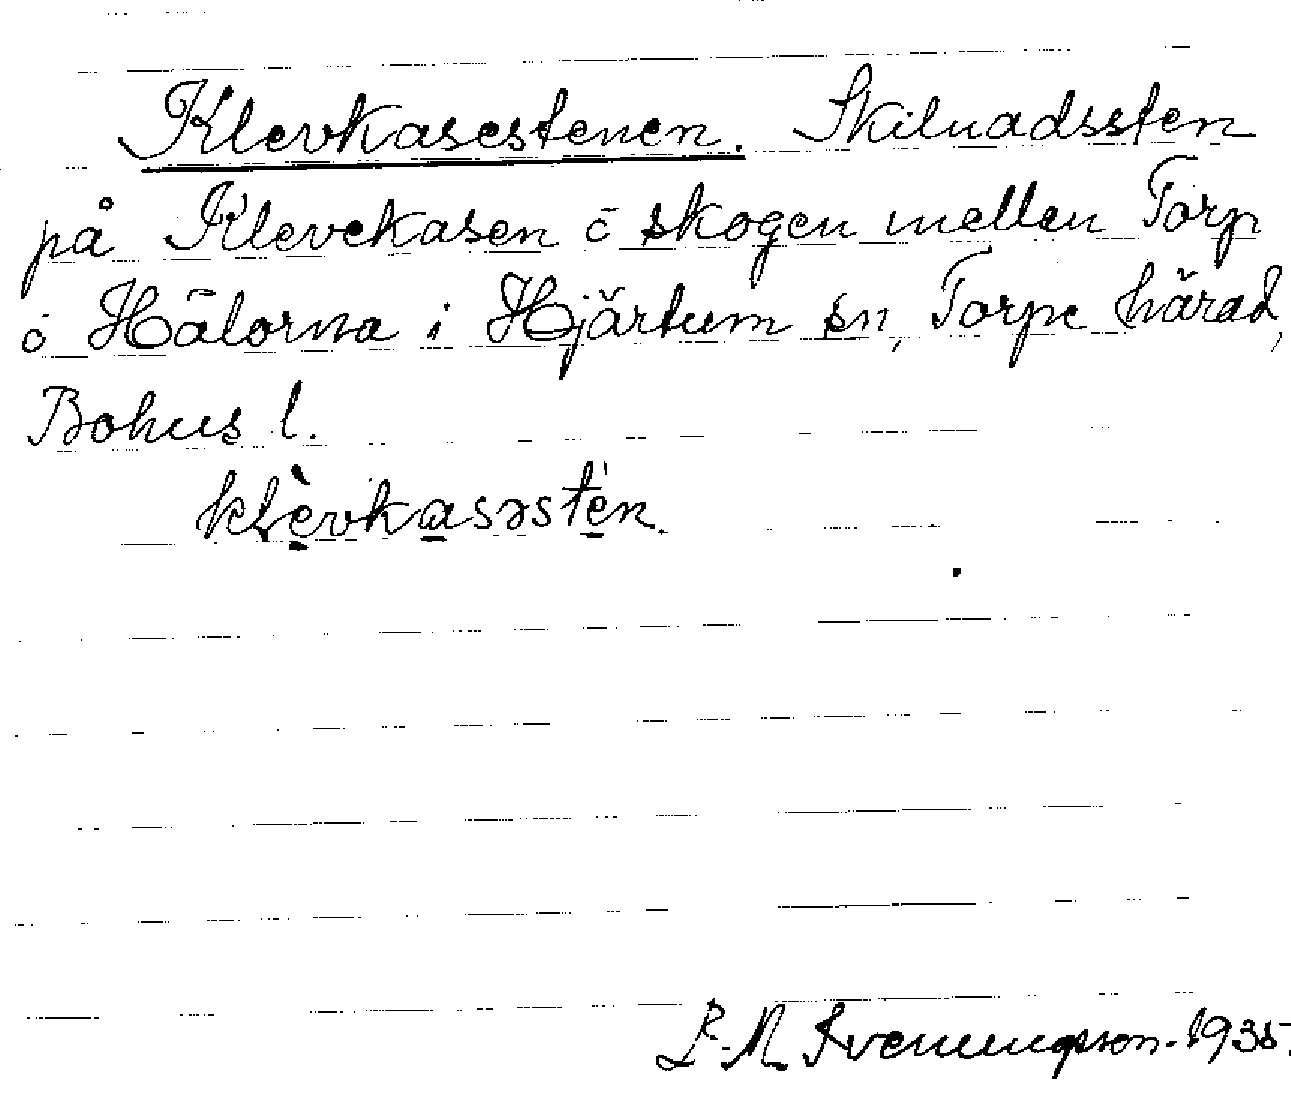 Klevkasestenen. Skilnadssten
på Klevekasen ō skogen mellan Torp
ō Hålorna i Hjärtum sn, Torpe härad,
Bohus l.
klèvkasəstén.
P. M. Svenungsson. 1935.